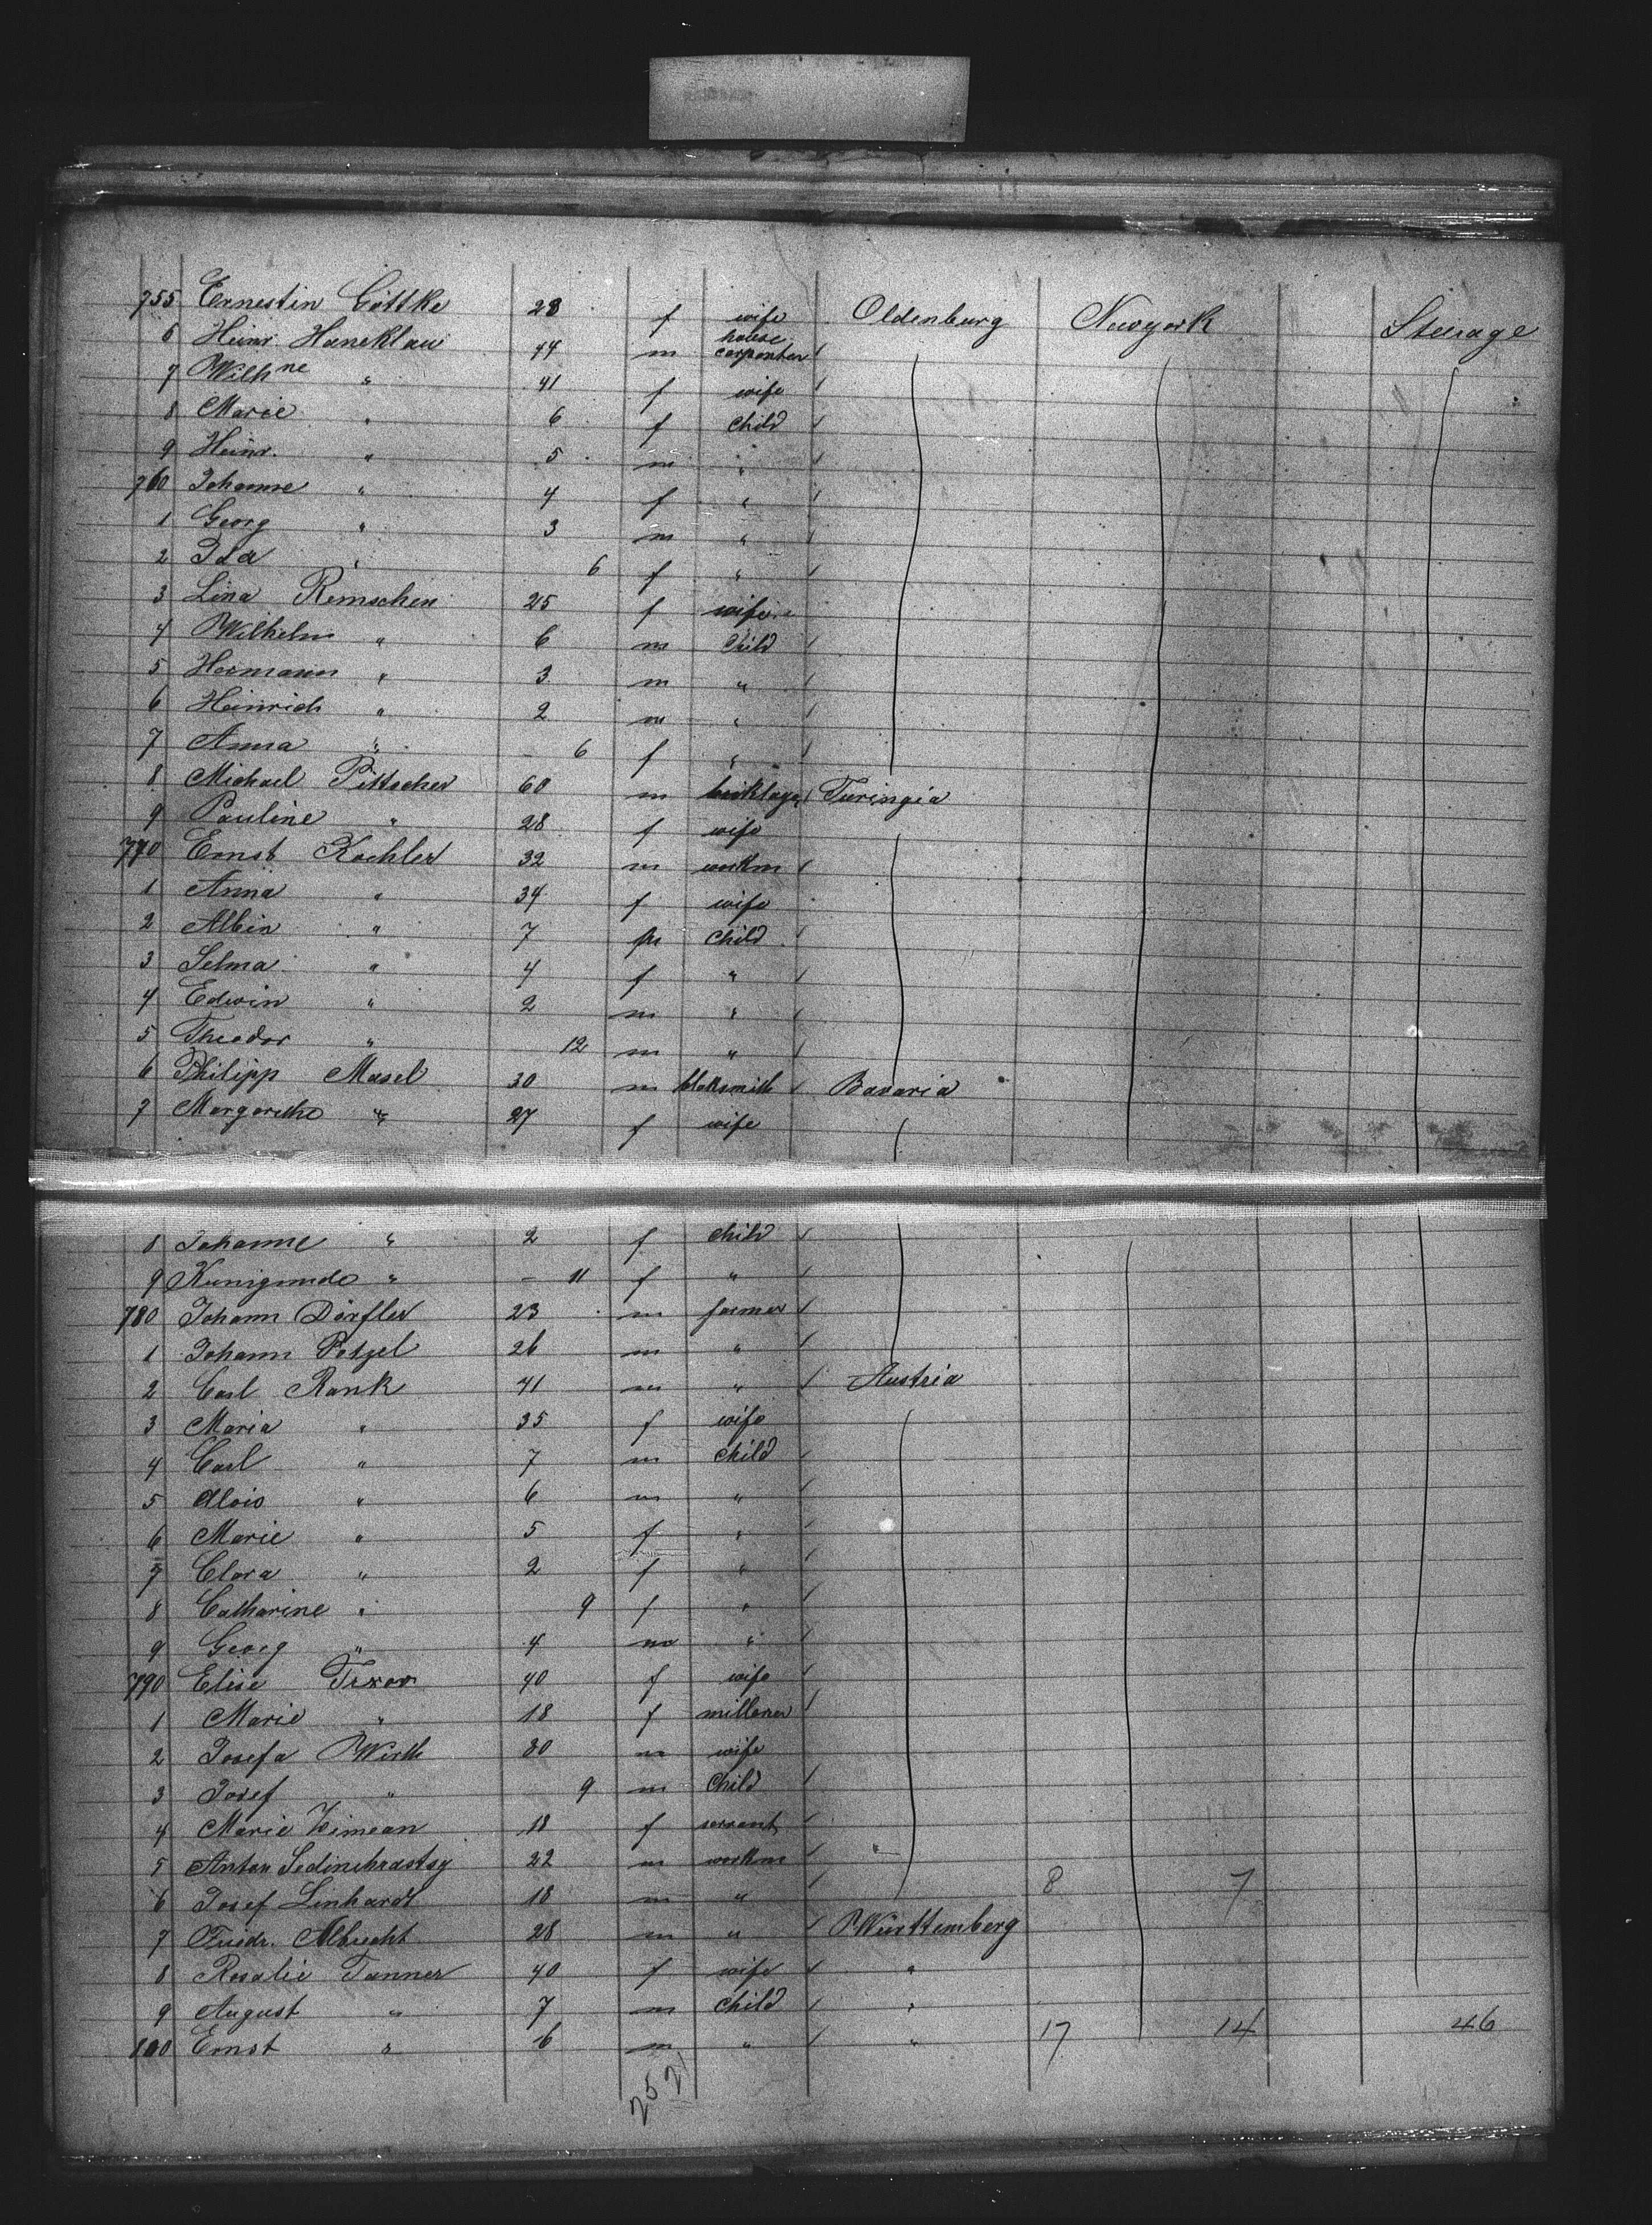 755 Ernestin Göttke 28 f wife Oldenburg Newyork Steerage
6 Heinr. Haneklau 44 m house carpenter
7 Wilhne " 41 f wife
8 Marie " 6 f child
9 Heinr. " 5 m "
760 Johanne " 4 f "
1 Georg " 3 m "
2 Ida " 6 f "
3 Lina Remschen 25 f wife
4 Wilhelm " 6 m Child
5 Hermann " 3 m "
6 Heinrich " 2 m "
7 Anna " - 6 f "
8 Michael Pittscher 60 m bricklayer Turingia
9 Pauline " 28 f wife
770 Ernst Kochler 32 m workm
1 Anna " 34 f wife
2 Albin " 7 m child
3 Selma " 4 f "
4 Edwin " 2 m "
5 Theodor " 12 m "
6 Philipp Masel 30 m blaksmith Bavaria
7 Margarethe " 27 f wife
8 Johanne " 2 f child
9 Kunigunde " - 11 f "
780 Johann Dörfler 23 m farmer
1 Johann Petzel 26 m "
2 Carl Rank 41 m " Austria
3 Maria " 35 f wife
4 Carl " 7 m child
5 Alois " 6 m "
6 Marie " 5 f "
7 Clara " 2 f "
8 Catharine " 9 f "
9 Georg " 4 m "
790 Elise 40 f wife
1 Marie " 18 f milloner
2 Josefa Wirth 30 m wife
3 Josef " 9 m Child
4 Marie 18 f servant
5 Anton 22 m workm "
6 Josef Linhardt 18 m " 8 7
7 Friedr. Albrecht 28 m " Württemberg
8 Rosalie Tanner 40 f wife "
9 August " 7 m child "
800 Ernst " 6 m " " 17 14 46
25 21